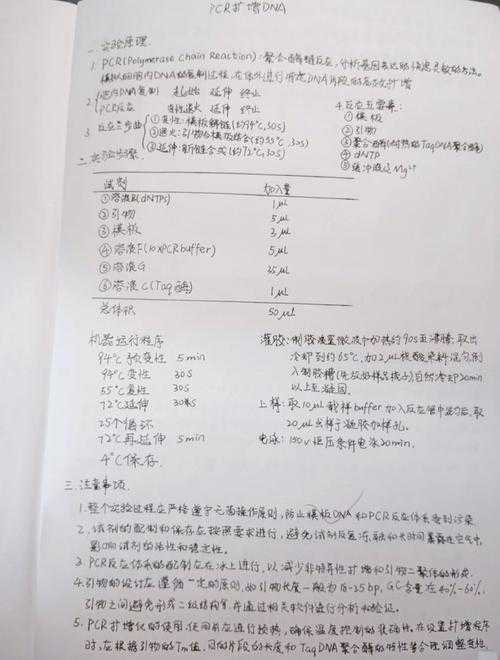 PCR扩增DNA
一.实验原理
1. PCR(Polymerase Chain Reaction):聚合酶链反应,分析基因表达的快速灵敏的方法。
模拟细胞内DNA的复制过程,在体外进行特定DNA片段的高效扩增
2. 胞内DNA复制 起始 延伸 终止
PCR反应 变性退火 延伸 终止
3. 反应三步曲
①变性:模板解链(约94℃,30S)
②退火:引物与模板结合(约55℃,30S)
③延伸:新链合成(约72℃,30S)
4.反应五要素:
①模板
②引物
③聚合酶(耐热的TaqDNA聚合酶)
④dNTP
⑤缓冲液及Mg²⁺
二.实验步骤
试剂 加入量
①溶液B(dNTPs) 1μL
②引物 5μL
③模板 3μL
④溶液F(10xPCRbuffer) 5μL
⑤溶液G 35μL
⑥溶液C(Taq酶) 1μL
总体积 50μL
机器运行程序
94℃预变性 5min
94℃变性 30S
55℃复性 30S
72℃延伸 30S
25个循环
72℃再延伸 5min
4℃保存.
灌胶:制胶液置微波炉加热约90s至沸腾,取出
冷却到约65℃,加2μL核酸染料混匀,倒
入制胶槽(先放好样品梳子)自然冷却20min
以上至凝固.
上样:取10μL载样buffer加入反应管中混匀后,取
20μL点样于凝胶加样孔。
电泳:150V恒压条件电泳20min.
三.注意事项
1.整个实验过程应严格遵守无菌操作原则,防止模板DNA和PCR反应体系受到污染.
2.试剂的配制和保存应按照要求进行,避免试剂反复冻融和长时间暴露在空气中,
影响试剂的活性和稳定性。
3.PCR反应体系的配制应在冰上进行,以减少非特异性扩增和引物二聚体的形成.
4.引物的设计应遵循一定的原则,如引物长度一般为18-25bp,GC含量在40%-60%,
引物之间避免形成二级结构等,并通过相关软件进行分析和验证。
5.PCR扩增仪的使用:使用前应进行预热,确保温度控制的准确性。在设置扩增程序
时,应根据引物的Tm值、目的片段的长度和TaqDNA聚合酶的特性等合理调整变性、